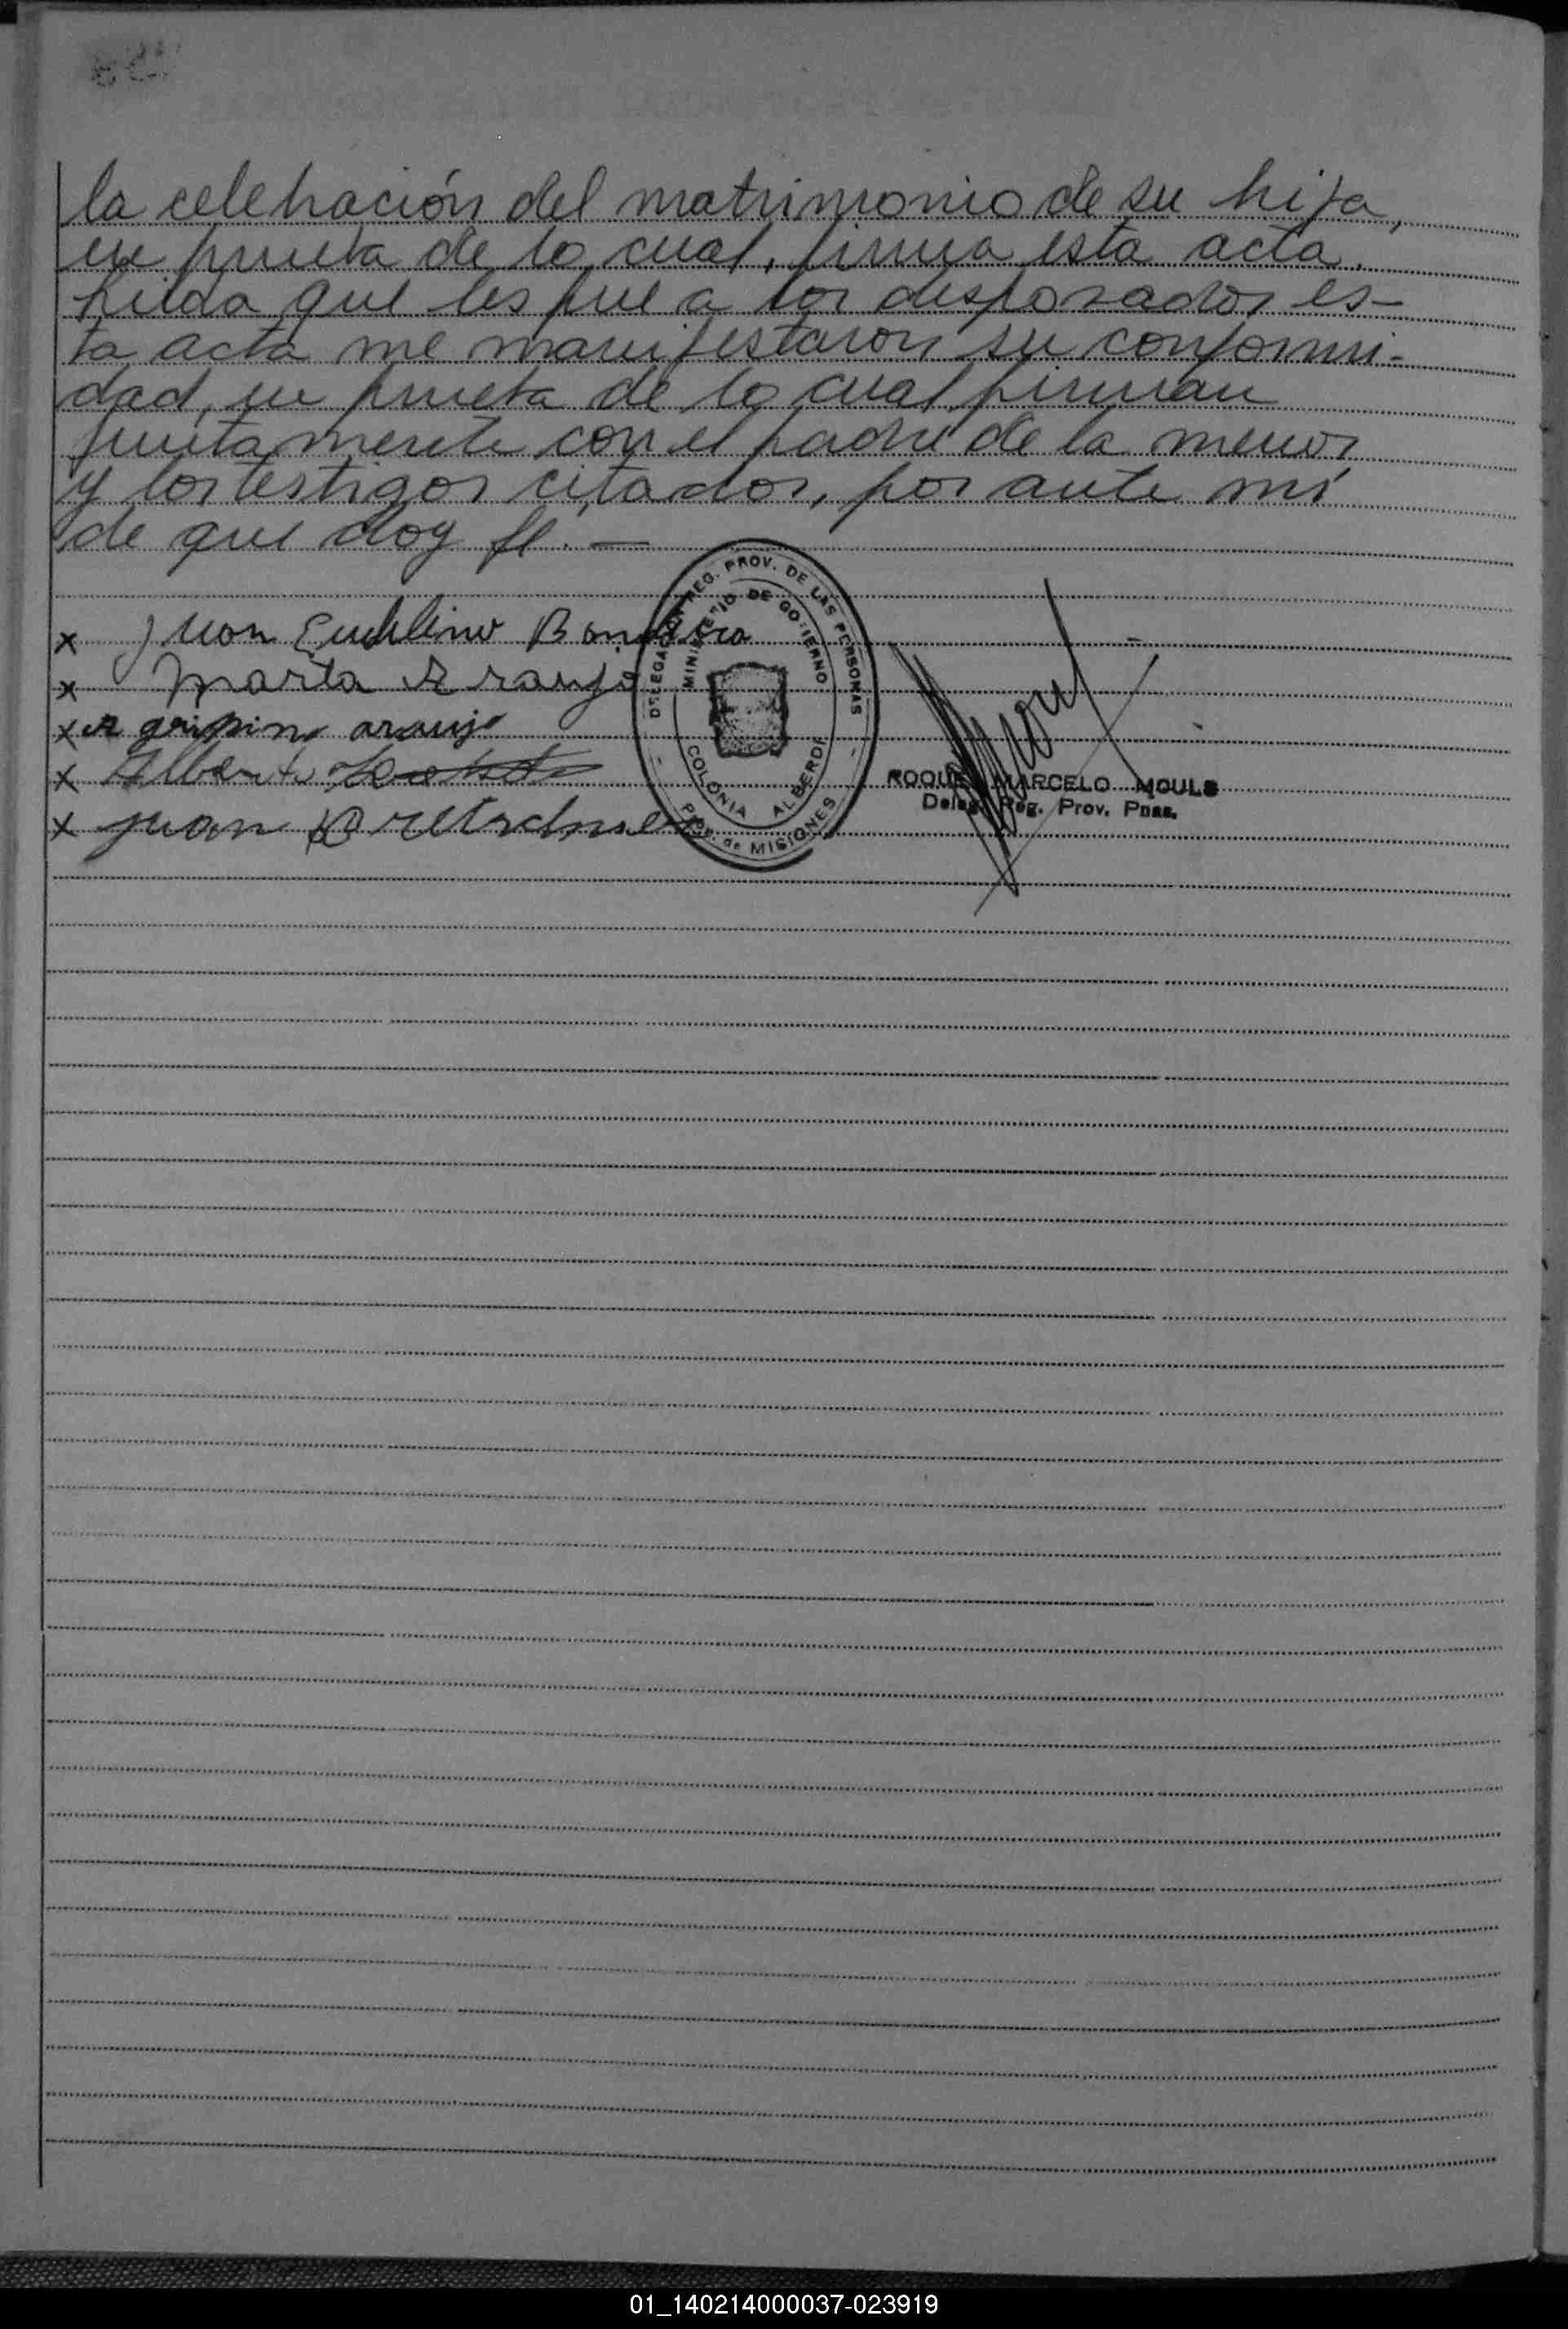 la celebración del matrimonio de su hija,
en prueba de lo cual, firma esta acta.
Leida que les fue a los desposados es-
ta acta me manifestaron su conformi-
dad, en prueba de lo cual firman
juntamente con el padre de la menor
y los testigos citados, por ante mí
de que doy fe. —
x Juan
x Marta Araujo
x Agripino araujo
x Alberto
x Juan
DELEGACION REG. PROV. DE LAS PERSONAS
MINISTERIO DE GOBIERNO
COLONIA ALBERDI
Prov. de MISIONES
ROQUE MARCELO MOULS
Deleg. Reg. Prov. Pnas.
01_140214000037-023919